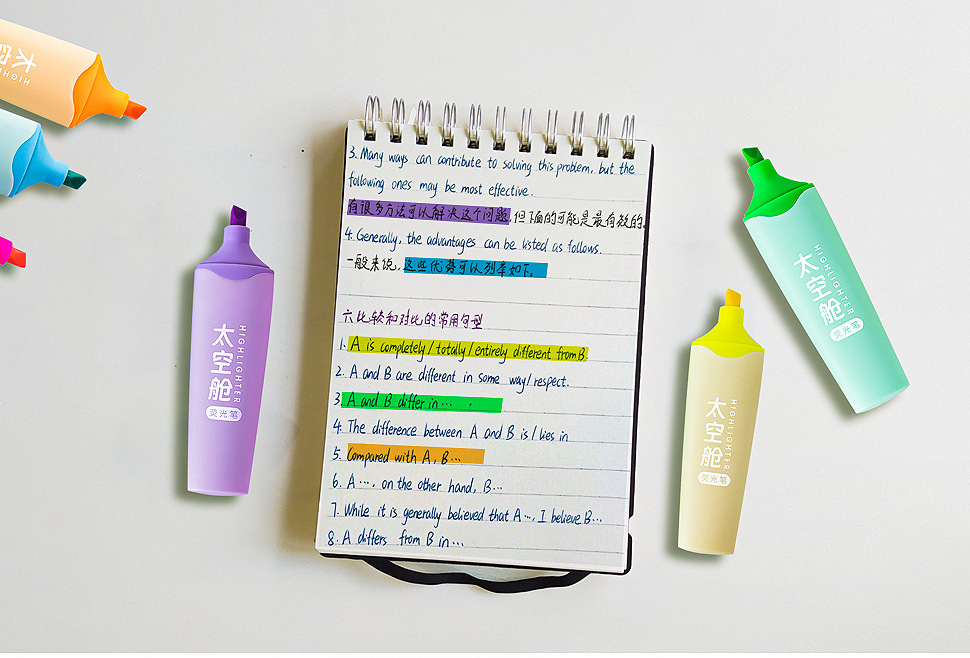 3. Many ways can contribute to solving this problem, but the
following ones may be most effective.
有很多方法可以解决这个问题,但下面的可能是最有效的.
4. Generally, the advantages can be listed as follows.
一般来说,这些优势可以列举如下.
六 比较和对比的常用句型
1. A is completely / totally / entirely different from B.
2. A and B are different in some way / respect.
3. A and B differ in …
4. The difference between A and B is / lies in
5. Compared with A, B…
6. A …, on the other hand, B…
7. While it is generally believed that A …, I believe B…
8. A differs from B in …
太空舱
HIGHLIGHTER
荧光笔
太空舱
HIGHLIGHTER
荧光笔
太空舱
HIGHLIGHTER
荧光笔